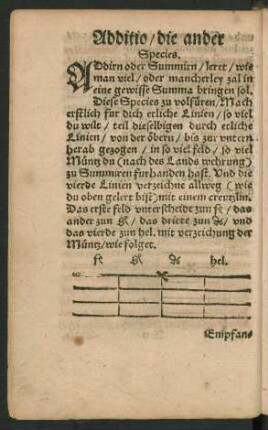 Additio/die ander
Species.
ADdirn oder Summirn/leret/wie
man viel/oder mancherley zal in
eine gewisse Summa bringen sol.
Diese Species zu volfüren/Mach
erstlich für dich erliche Linien/so viel
du wilt/teil dieselbigen durch erliche
Linien/von der öbern/bis zur vntern
herab gezogen/in so viel feld/so viel
Müntz du (nach des Lands wehrung)
zu Summiren furhanden hast. Vnd die
vierde Linien verzeichne allweg (wie
du oben gelert bist) mit einem creutzlin.
Das erste feld vnterscheide zum fl/das
ander zum /das dritte zum /vnd
das vierde zum hel. mit verzeichung der
Müntz/wie folget.
fl hel.
Empfan⸗